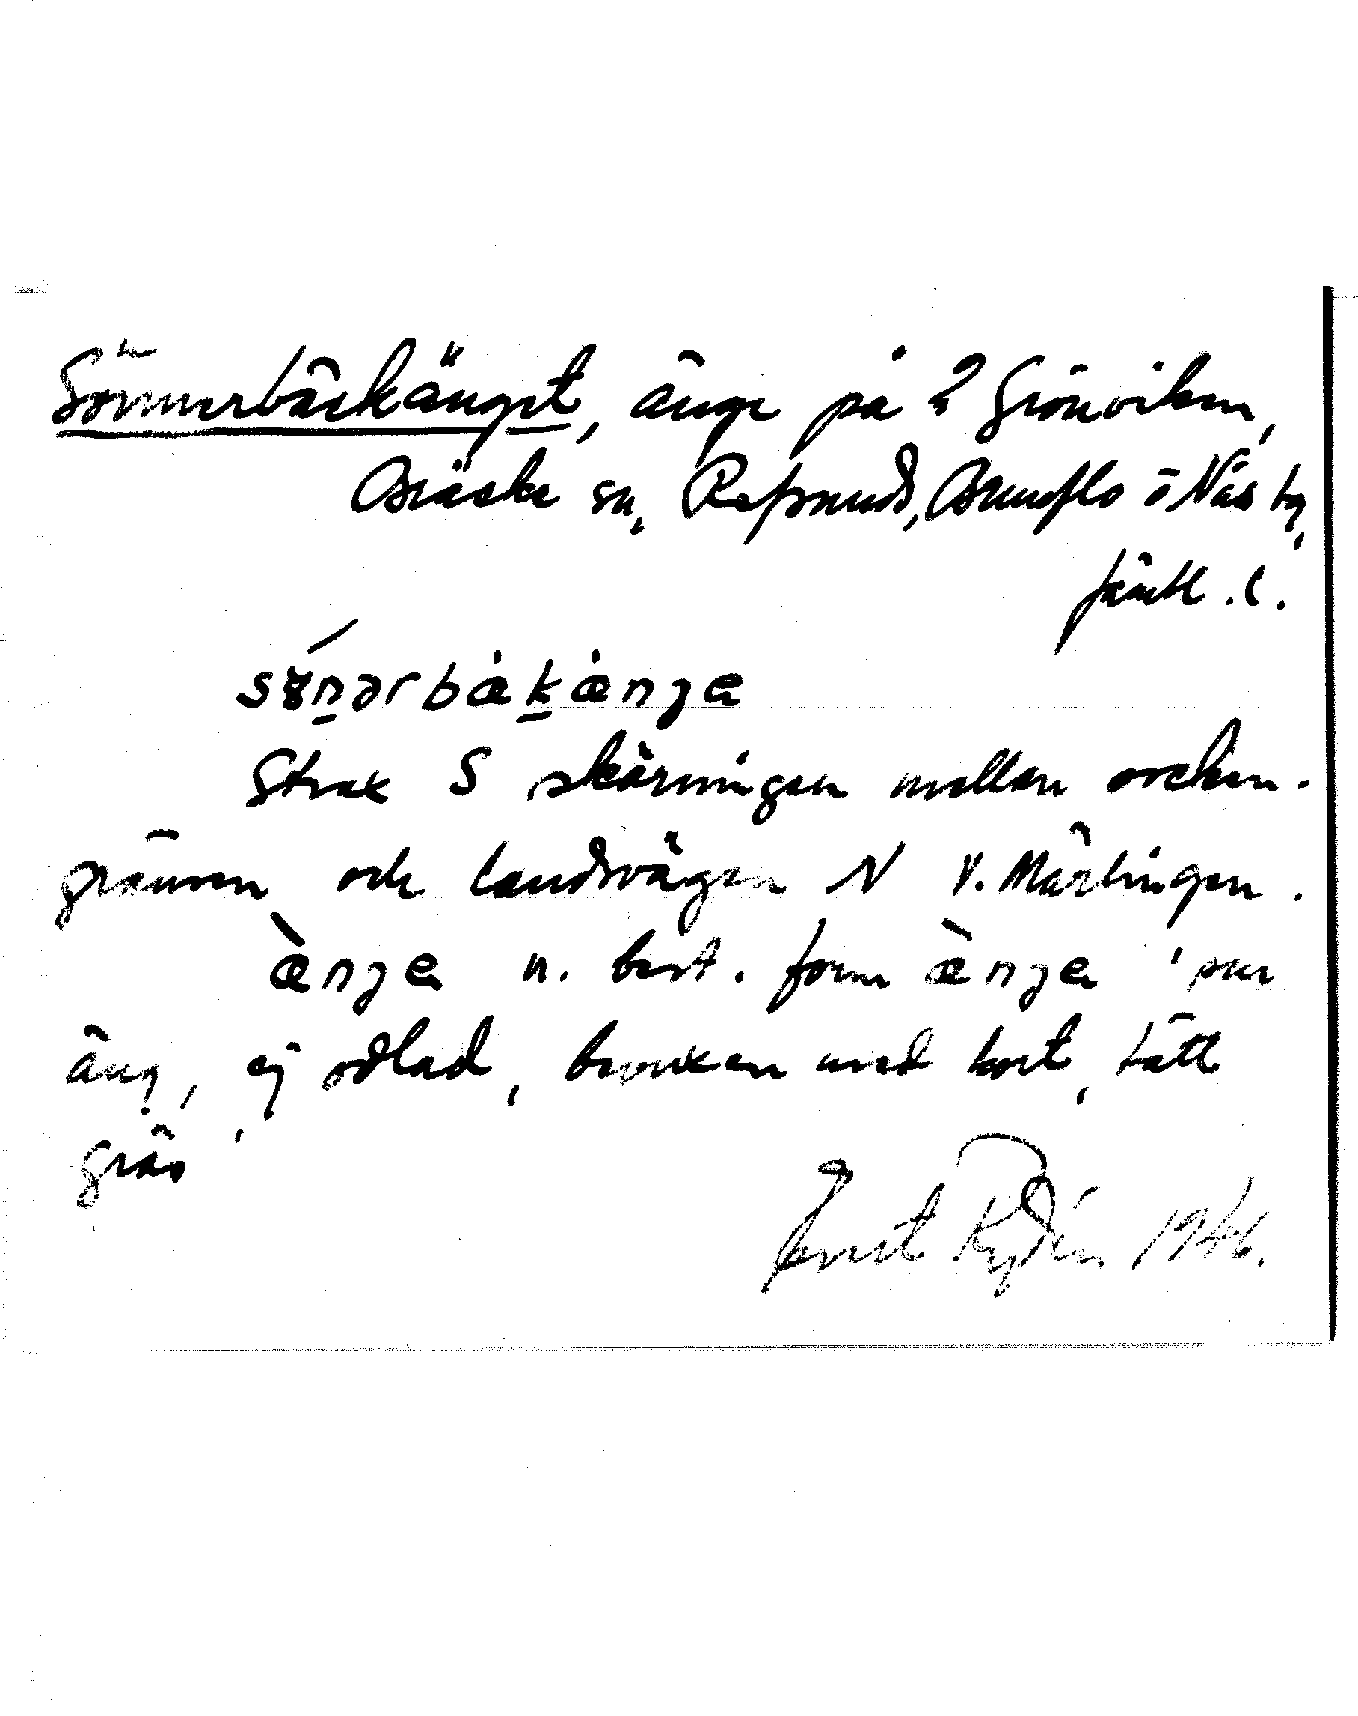 Sönnerbäckänget, änge på 2 Grönviken,
Bräcke sn, Refsunds, Brunflo o Näs tg,
Jämtl. l.
sɤ́nərbækænʒe
Strax S skärningen mellan socken-
gränsen och landsvägen N V. Märlingen.
æ̀nʒe n. best. form æ̀nʒe 'pur
äng, ej odlad, bevuxen med kort, tätt
gräs'
Ernst Rydén 1946.